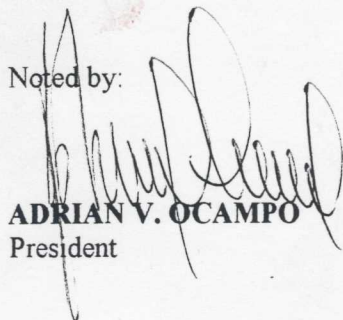 Noted by:
ADRIAN V. OCAMPO
President